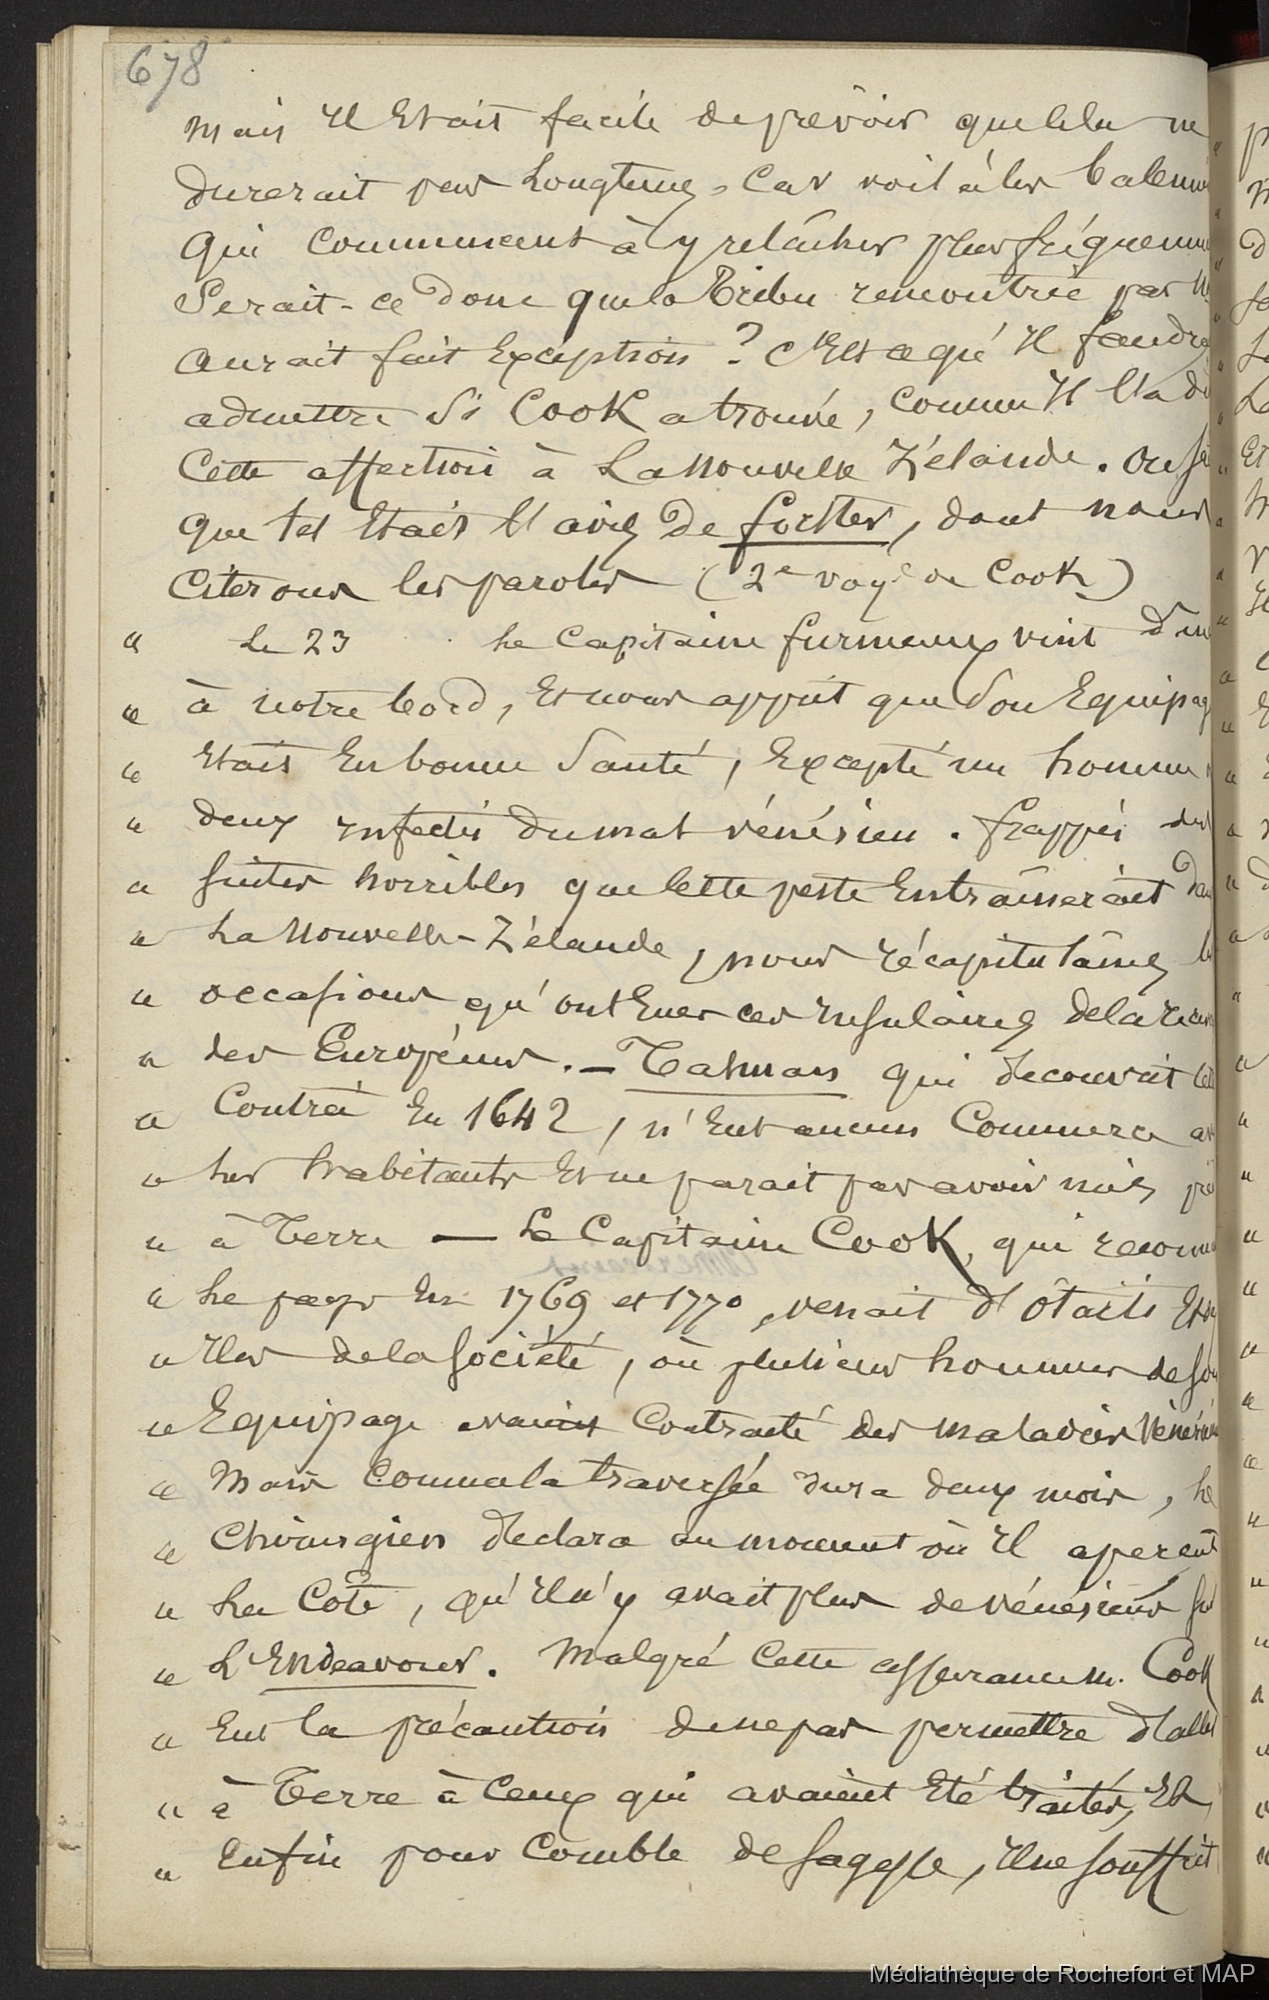 678
mais Il Etait facile de prévoir que cela ne
durerait pas Longtems, Car voilà les balein
qui commencent à y relâcher plus fréquemm
Serait-ce donc que la Tribu rencontrée par
aurait fait Exception ? C'Est ce qu'Il faudra
admettre Si Cook a trouvé, comme Il l'a di
Cette affection à La Nouvelle Zélande.
que tel Etait l'avis de forster, dont nous
Citerons les paroles (2e voye de Cook)
" Le 23 Le Capitaine furneaux vint
" à notre bord, Et nous apprit que Son Equipag
" Etait En bonne Santé, Excepté un homme
" deux infectés du mal vénérien. frappés des
" suites horribles que cette peste Entraînerait
" La Nouvelle-Zélande, nous récapitulâmes
" occasions qu'ont Eues ces Insulaires de la
" des Européens. — Tasman qui découvrit
" Contrée En 1642, n'Eut aucun Commerce
" Les habitants Et ne parait pas avoir mis
" à Terre — Le Capitaine Cook, qui reconn
" Le pays En 1769 et 1770, venait d'Otaïti
" Iles de la Société, où plusieurs hommes de son
" Equipage avaient Contracté des maladies Vénérien
" Mais Comme la traversée dura deux mois, Le
" Chirurgien déclara au moment où Il aperçut
" La Côte, qu'Il n'y avait plus de vénériens
" L'Endeavour. Malgré Cette assurance M. Cook
" Eut la précaution de ne pas permettre d'aller
" à Terre à Ceux qui avaient Eté traités, Et,
" Enfin pour Comble de Sagesse, Il ne souffrit
Médiathèque de Rochefort et MAP